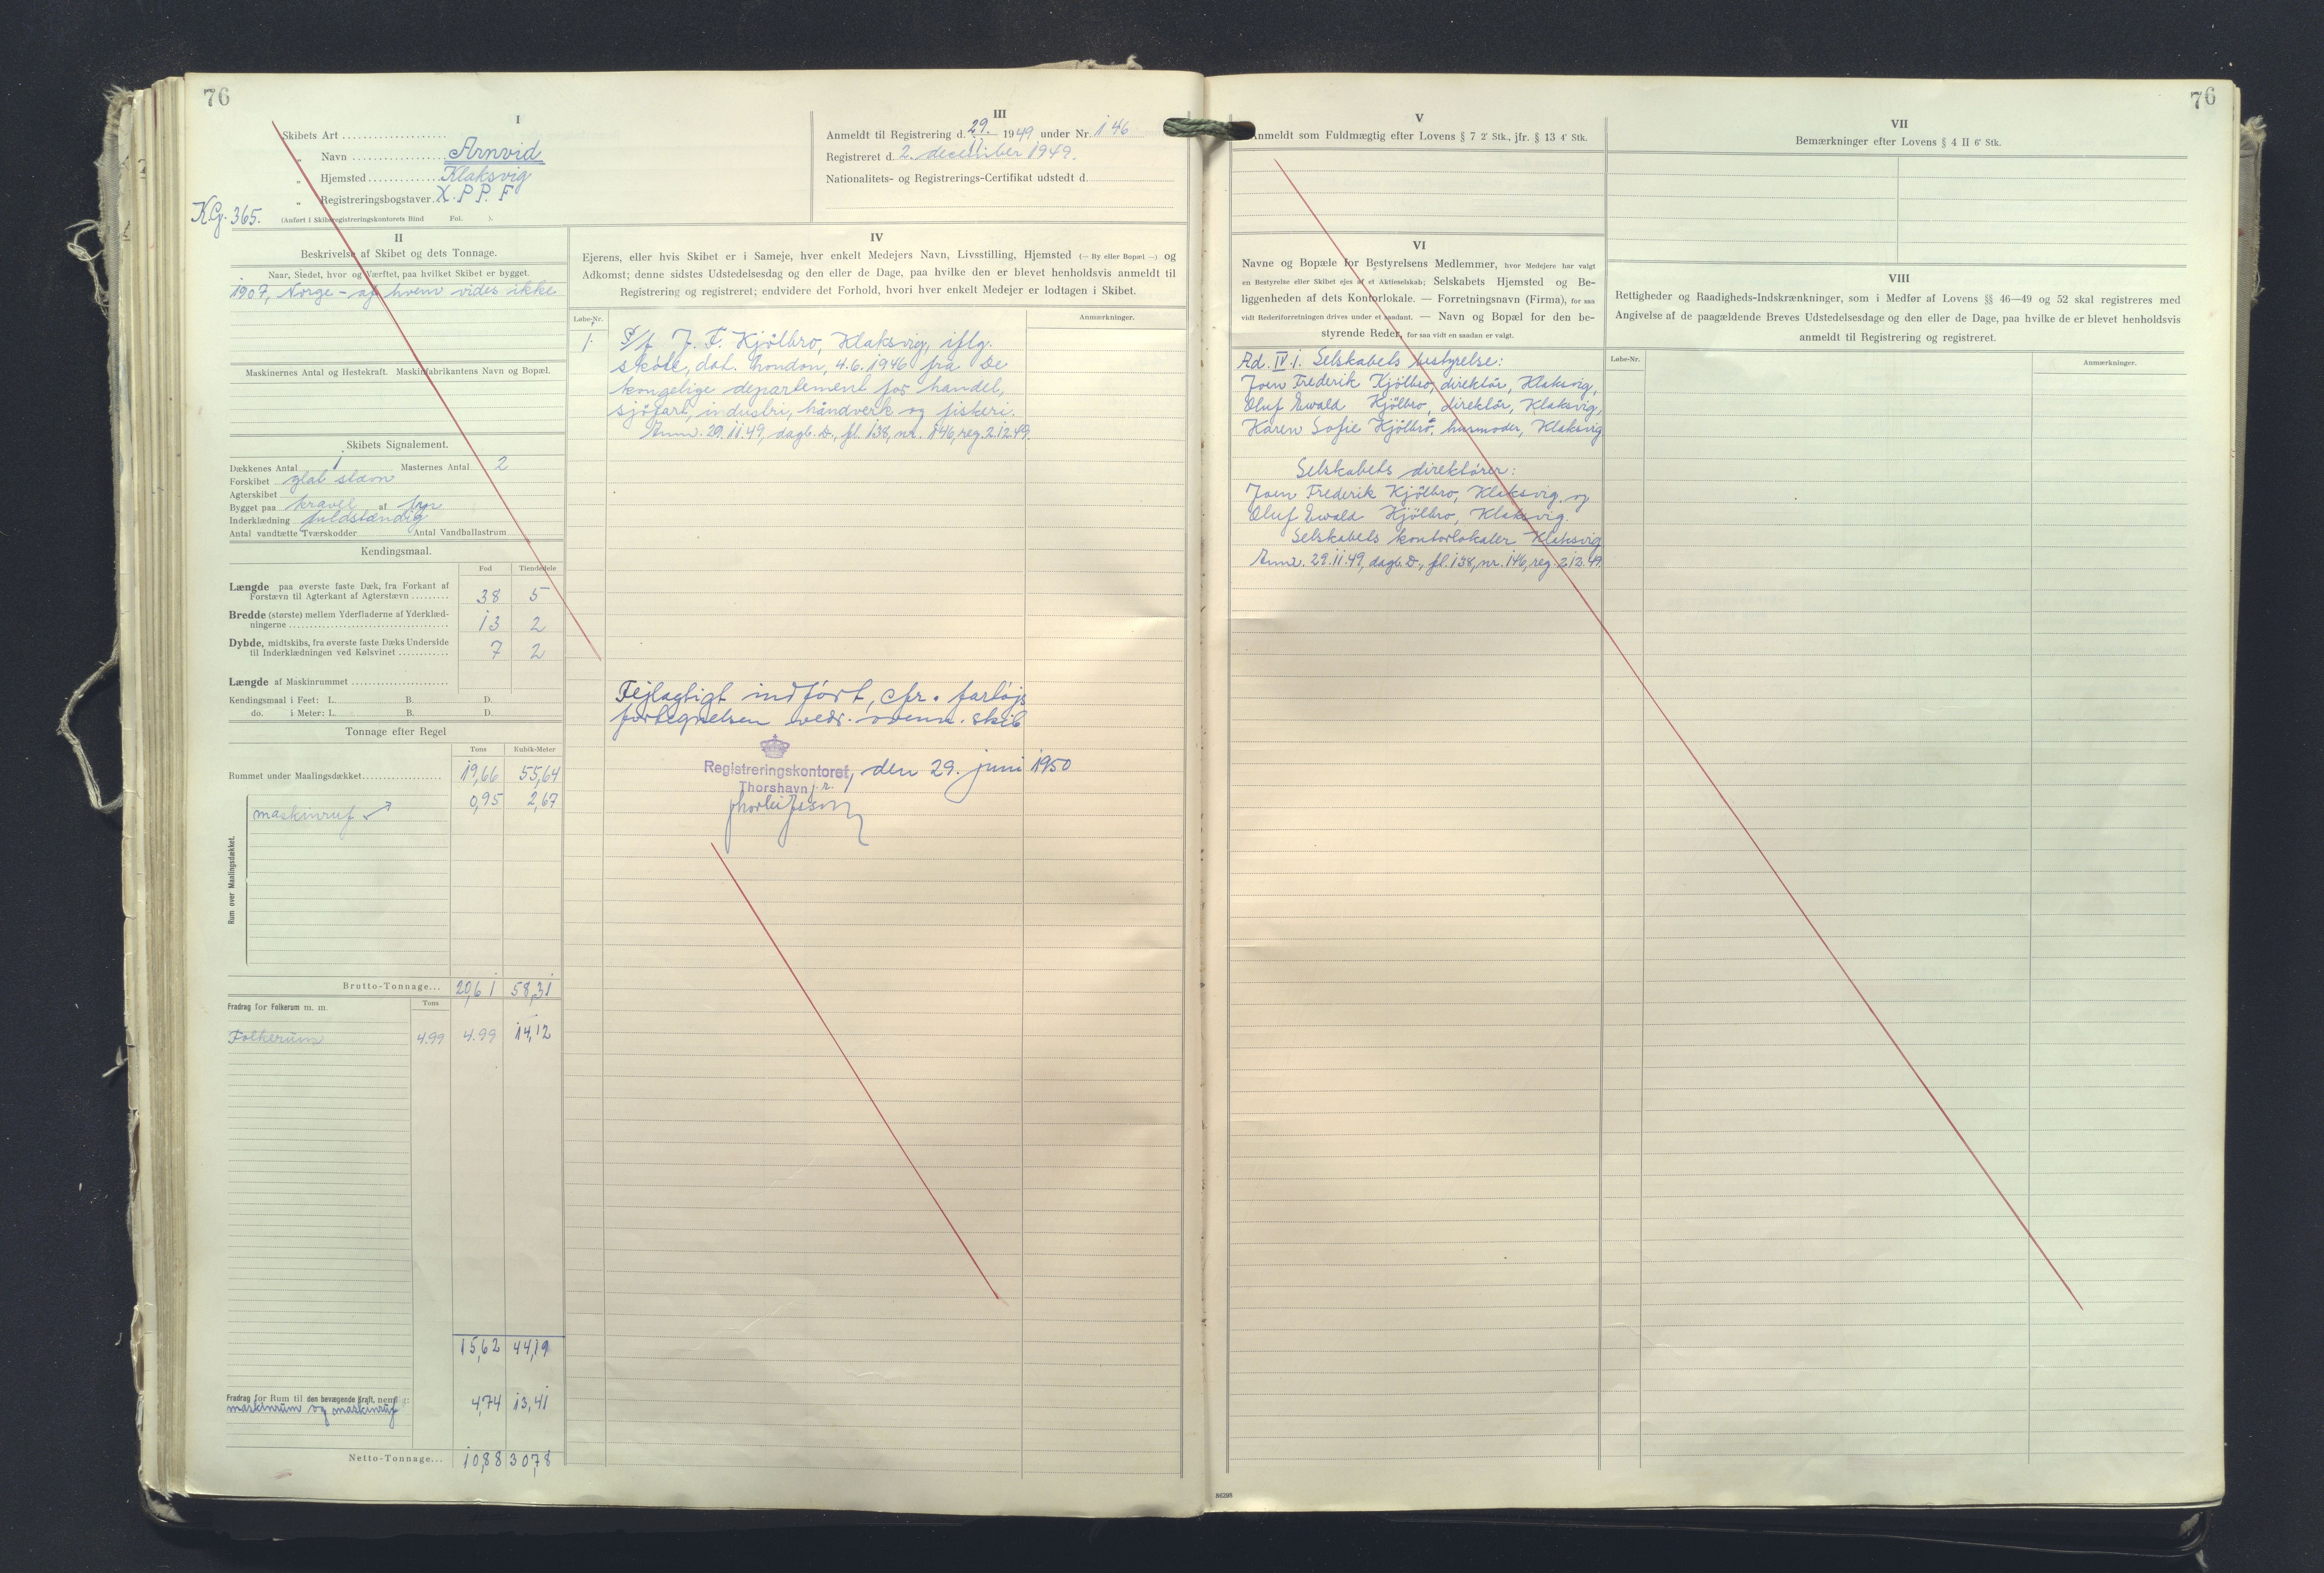 76
I
Skibets Art
„ Navn Arnvid
„ Hjemsted Klaksvig
„ Registreringsbogstaver X.P.P.F
KG. 365.
(Anført i Skibsregistreringskontorets Bind Fol. ).
II
Beskrivelse af Skibet og dets Tonnage.
Naar, Stedet, hvor og Værftet, paa hvilket Skibet er bygget.
1907, Norge - af hvem vides ikke
Maskinernes Antal og Hestekraft. Maskinfabrikantens Navn og Bopæl.
Skibets Signalement.
Dækkenes Antal 1 Masternes Antal 2
Forskibet glat stævn
Agterskibet
Bygget paa kravel af fyr
Inderklædning fuldstændig
Antal vandtætte Tværskodder Antal Vandballastrum
Kendingsmaal.
Fod Tiendedele
Længde paa øverste faste Dæk, fra Forkant af
Forstævn til Agterkant af Agterstævn 38 5
Bredde (største) mellem Yderfladerne af Yderklæd-
ningerne 13 2
Dybde, midtskibs, fra øverste faste Dæks Underside
til Inderklædningen ved Kølsvinet 7 2
Længde af Maskinrummet
Kendingsmaal i Feet: L. B. D.
do. i Meter: L. B. D.
Tonnage efter Regel
Tons Kubik-Meter
Rummet under Maalingsdækket 19,66 55,64
0,95 2,67
maskinruf
Rum over Maalingsdækket.
Brutto-Tonnage... 20,61 58,31
Fradrag for Folkerum m. m. Tons
Folkerum 4.99 4.99 14,12
15,62 44,19
Fradrag for Rum til den bevægende Kraft, nemlig:
maskinrum og maskinruf 4,74 13,41
Netto-Tonnage... 10,88 30,78
III
Anmeldt til Registrering d. 29.11 1949 under Nr. 146
Registreret d. 2. december 1949.
Nationalitets- og Registrerings-Certifikat udstedt d.
IV
Ejerens, eller hvis Skibet er i Sameje, hver enkelt Medejers Navn, Livsstilling, Hjemsted (— By eller Bopæl —) og
Adkomst; denne sidstes Udstedelsesdag og den eller de Dage, paa hvilke den er blevet henholdsvis anmeldt til
Registrering og registreret; endvidere det Forhold, hvori hver enkelt Medejer er lodtagen i Skibet.
Løbe-Nr. Anmærkninger.
1. P/f J. F. Kjølbro, Klaksvig, iflg.
skøde, dat. London, 4.6.1946 fra De
kongelige departement for handel,
sjøfart, industri, håndverk og fiskeri.
Anm. 29.11.49, dagb. D., fl. 138, nr. 146, reg. 2.12.49.
Fejlagtigt indført, cfr. fartøjs
fortegnelsen vedr. ovenn. skib
Registreringskontoret, den 29. juni 1950
Thorshavn
V
Anmeldt som Fuldmægtig efter Lovens § 7 2' Stk., jfr. § 13 4' Stk.
VI
Navne og Bopæle for Bestyrelsens Medlemmer, hvor Medejere har valgt
en Bestyrelse eller Skibet ejes af et Aktieselskab; Selskabets Hjemsted og Be-
liggenheden af dets Kontorlokale. — Forretningsnavn (Firma), for saa
vidt Rederiforretningen drives under et saadant. — Navn og Bopæl for den be-
styrende Reder, for saa vidt en saadan er valgt.
Ad. IV. 1. Selskabets bestyrelse:
Joen Frederik Kjølbro, direktør, Klaksvig,
Oluf Ewald Kjølbro, direktør, Klaksvig,
Karen Sofie Kjølbro, husmoder, Klaksvig
Selskabets direktører:
Joen Frederik Kjølbro, Klaksvig og
Oluf Ewald Kjølbro, Klaksvig.
Selskabets kontorlokaler Klaksvig
Anm. 29.11.49, dagb. D., fl. 138, nr. 146, reg. 2.12.49.
86298
76
VII
Bemærkninger efter Lovens § 4 II 6' Stk.
VIII
Rettigheder og Raadigheds-Indskrænkninger, som i Medfør af Lovens §§ 46—49 og 52 skal registreres med
Angivelse af de paagældende Breves Udstedelsesdage og den eller de Dage, paa hvilke de er blevet henholdsvis
anmeldt til Registrering og registreret.
Løbe-Nr. Anmærkninger.